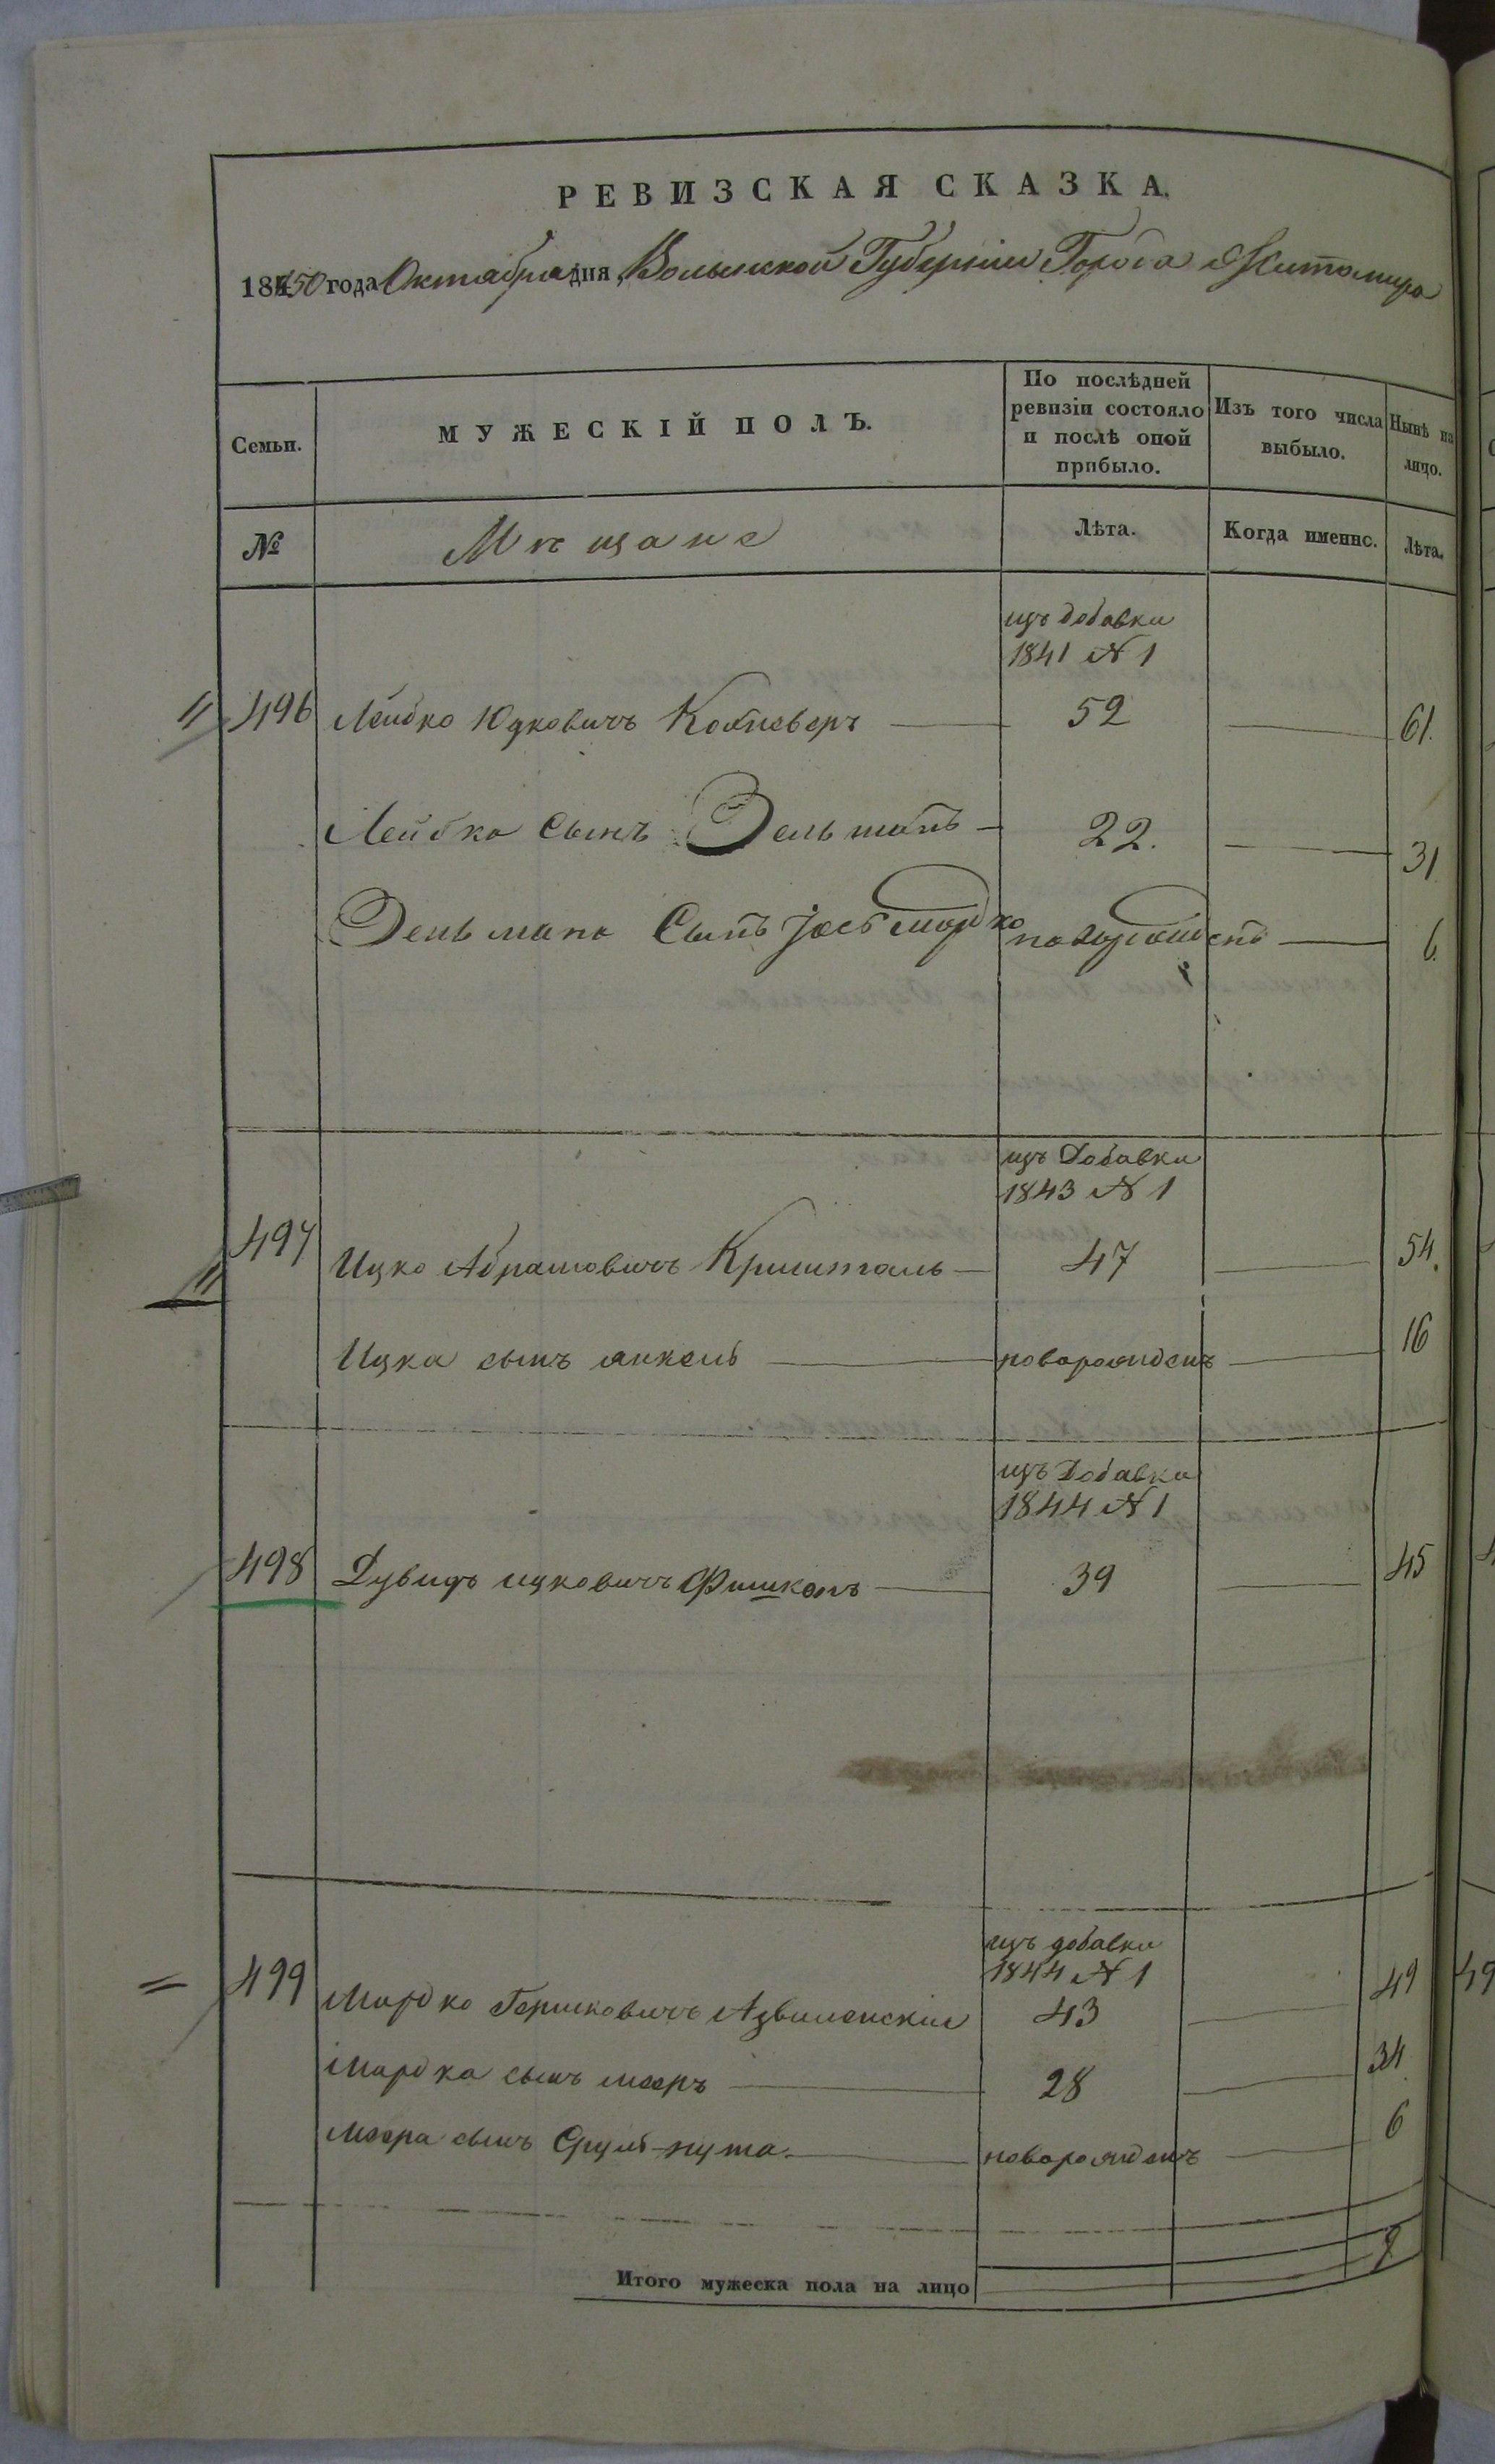 РЕВИЗСКАЯ СКАЗКА.
1850 года Октября дня, Волынской Губерніи Города Житомира
Семьи. МУЖЕСКІЙ ПОЛЪ. По послѣдней ревизіи состояло и послѣ оной прибыло. Изъ того числа выбыло. Нынѣ на лицо.
№ Мѣщане Лѣта. Когда именно. Лѣта.
изъ добавки
1841 № 1
496 Лейбко Юдковичъ 52 61.
Лейбка Сынъ Зельманъ 22. 31
Зельмана Сынъ Мордко новорожденъ 6.
изъ Добавки
1843 № 1
497 Ицко Абрамовичъ Криштать 47 54.
Ицка сынъ янкель новорожденъ 16
изъ Добавки
1844 № 1
498 Дувидъ ицковичъ 39 45
изъ добавки
1844 № 1
499 Мордко Гершковичъ 43 49
Мордка сынъ мееръ 28 34
Меера сынъ Сруль-нута новорожденъ 6
Итого мужеска пола на лицо 9
49